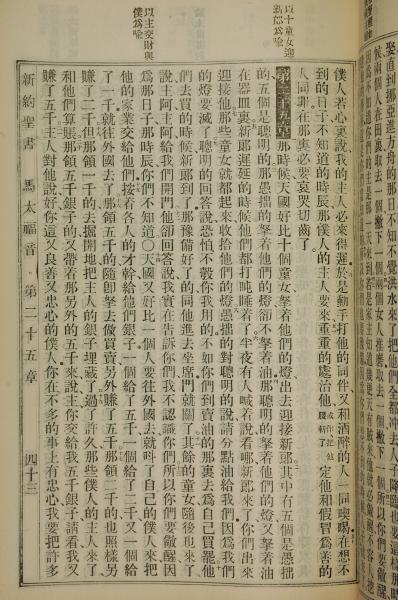 娶直到挪亞進方舟的那日不知不覺洪水來了把他們全都
僕人若心裏說我的主人必來得遲於是動手打他的同伴又和酒醉的人一同喫喝在想不
到的日子不知道的時辰那僕人的主人要來重重的處治他或作把他腰斬了定他和假冒爲善的
人同罪在那裏必要哀哭切齒了
以十童女迎
新郎爲喻
第二十五章那時候天國好比十個童女拏着他們的燈出去迎接新郎其中有五個是愚拙
的五個是聰明的那愚拙的拏着他們的燈卻不拏着油那聰明的拏着他們的燈又拏着油
在器皿裏新郎遲延的時候他們都打盹睡着了半夜有人喊着說看哪新郎來了你們出來
迎接他那些童女就都起來收拾他們的燈愚拙的對聰明的說請分點油給我們因爲我們
的燈要滅了聰明的回答說恐怕不彀你我用的不如你們到賣油的那裏去爲自己買罷他
們去買的時候新郎到了那豫備好了的同他進去坐席門就關了其餘的童女隨後也來了
說主阿主阿給我們開門他卻回答說我實在告訴你們我不認識你們所以你們要儆醒因
以主交財與
僕爲喻
爲那日子那時辰你們不知道○天國又好比一個人要往外國去就呌了自己的僕人來把
他的家業交給他們按着各人的才幹給他們銀子一個給了五千一個給了二千又一個給
了一千就往外國去了那領五千的隨卽拏去做買賣另外賺了五千那領二千的也照樣另
賺了二千但那領一千的去掘開地把主人的銀子埋藏了過了許久那些僕人的主人來了
和他們算賬那領五千銀子的又帶着那另外的五千來說主你交給我五千銀子請看我又
賺了五千主人對他說好你這又良善又忠心的僕人你在不多的事上有忠心我要把許多
新約聖書 馬太福音 第二十五章 四十三